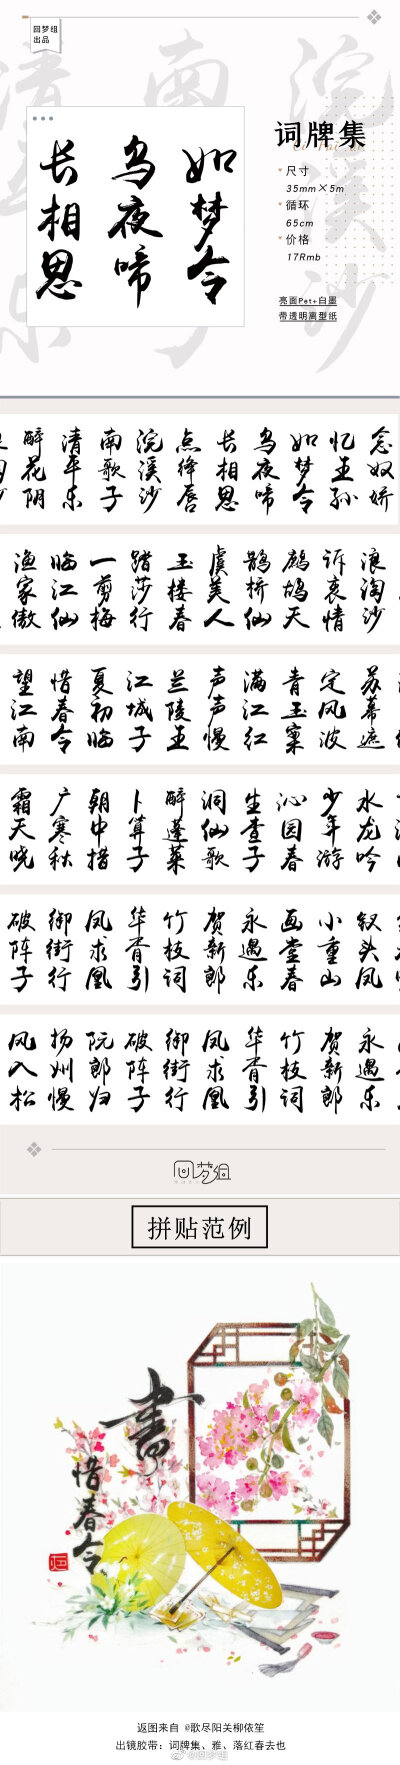 回梦组
出品
浣溪沙
南
清平乐
如梦令
乌夜啼
长相思
词牌集
尺寸
35mm×5m
循环
65cm
价格
17Rmb
亮面Pet+白墨
带透明离型纸
念奴娇
忆王孙
如梦令
乌夜啼
长相思
点绛唇
浣溪沙
南歌子
清平乐
醉花阴
浪淘沙
诉衷情
鹧鸪天
鹊桥仙
虞美人
玉楼春
踏莎行
一剪梅
临江仙
渔家傲
苏幕遮
定风波
青玉案
满江红
声声慢
兰陵王
江城子
夏初临
惜春令
望江南
水龙吟
少年游
沁园春
生查子
洞仙歌
醉蓬莱
卜算子
朝中措
广寒秋
霜天晓
钗头凤
小重山
画堂春
永遇乐
贺新郎
竹枝词
华胥引
凤求凰
御街行
破阵子
永遇乐
贺新郎
竹枝词
华胥引
凤求凰
御街行
破阵子
阮郎归
扬州慢
风入松
回梦组
拼贴范例
书
惜春令
返图来自 @歌尽阳关柳依笙
出镜胶带：词牌集、雅、落红春去也
@回梦组